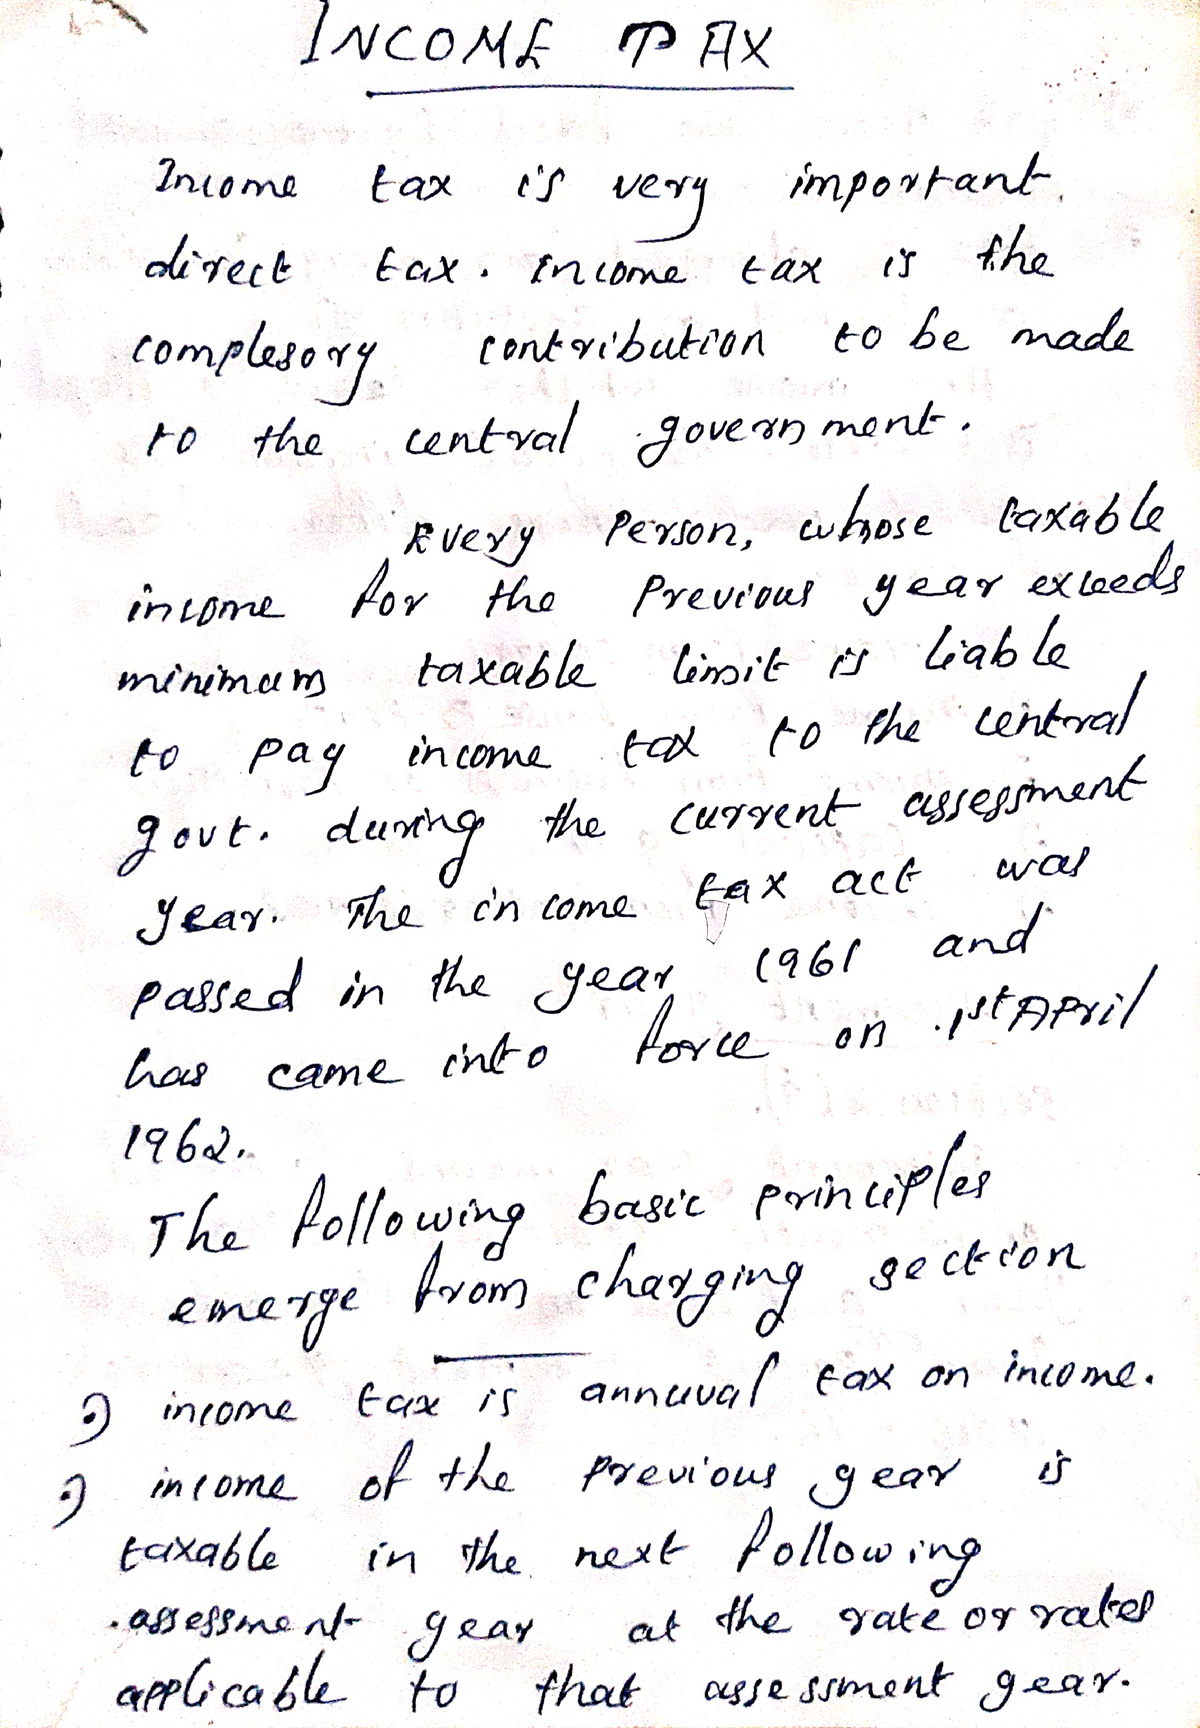 INCOME TAX
Income tax is very important
direct tax. Income tax is the
complesory contribution to be made
to the central government.
Every Person, whose taxable
income for the Previous year exceeds
minimum taxable limit is liable
to pay income tax to the central
govt. during the current assessment
year. The income tax act was
passed in the year 1961 and
has came into force on 1st April
1962.
The following basic principles
emerge from charging section
•) income tax is annuval tax on income.
•) income of the Previous year is
taxable in the next following
assessment year at the rate or rates
applicable to that assessment year.